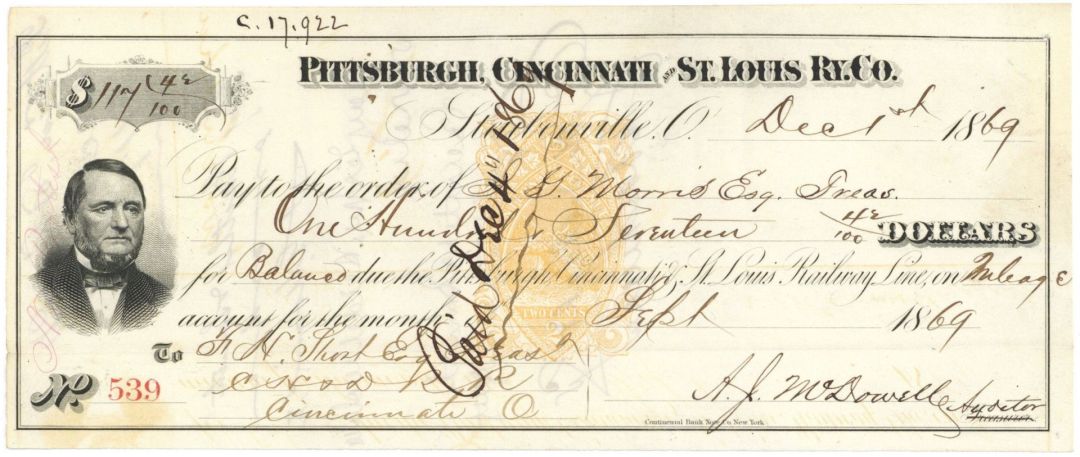 C. 17,922
PITTSBURGH, CINCINNATI AND ST. LOUIS RY. CO.
$117 42/100
Steubenville, O. Dec 1st 1869
Pay to the order of Morris Esq. Treas.
One Hundred & Seventeen 42/100 DOLLARS
for Balance due the Pittsburgh, Cincinnati & St. Louis Railway Line, on Mileage
account for the month Sept 1869
To F. H. Short Esq Treas
C H & D R. R.
Cincinnati O
No 539
A. J. McDowell Auditor
Paid Dec 4" 1869
TWO CENTS
2
Continental Bank Note Co New York